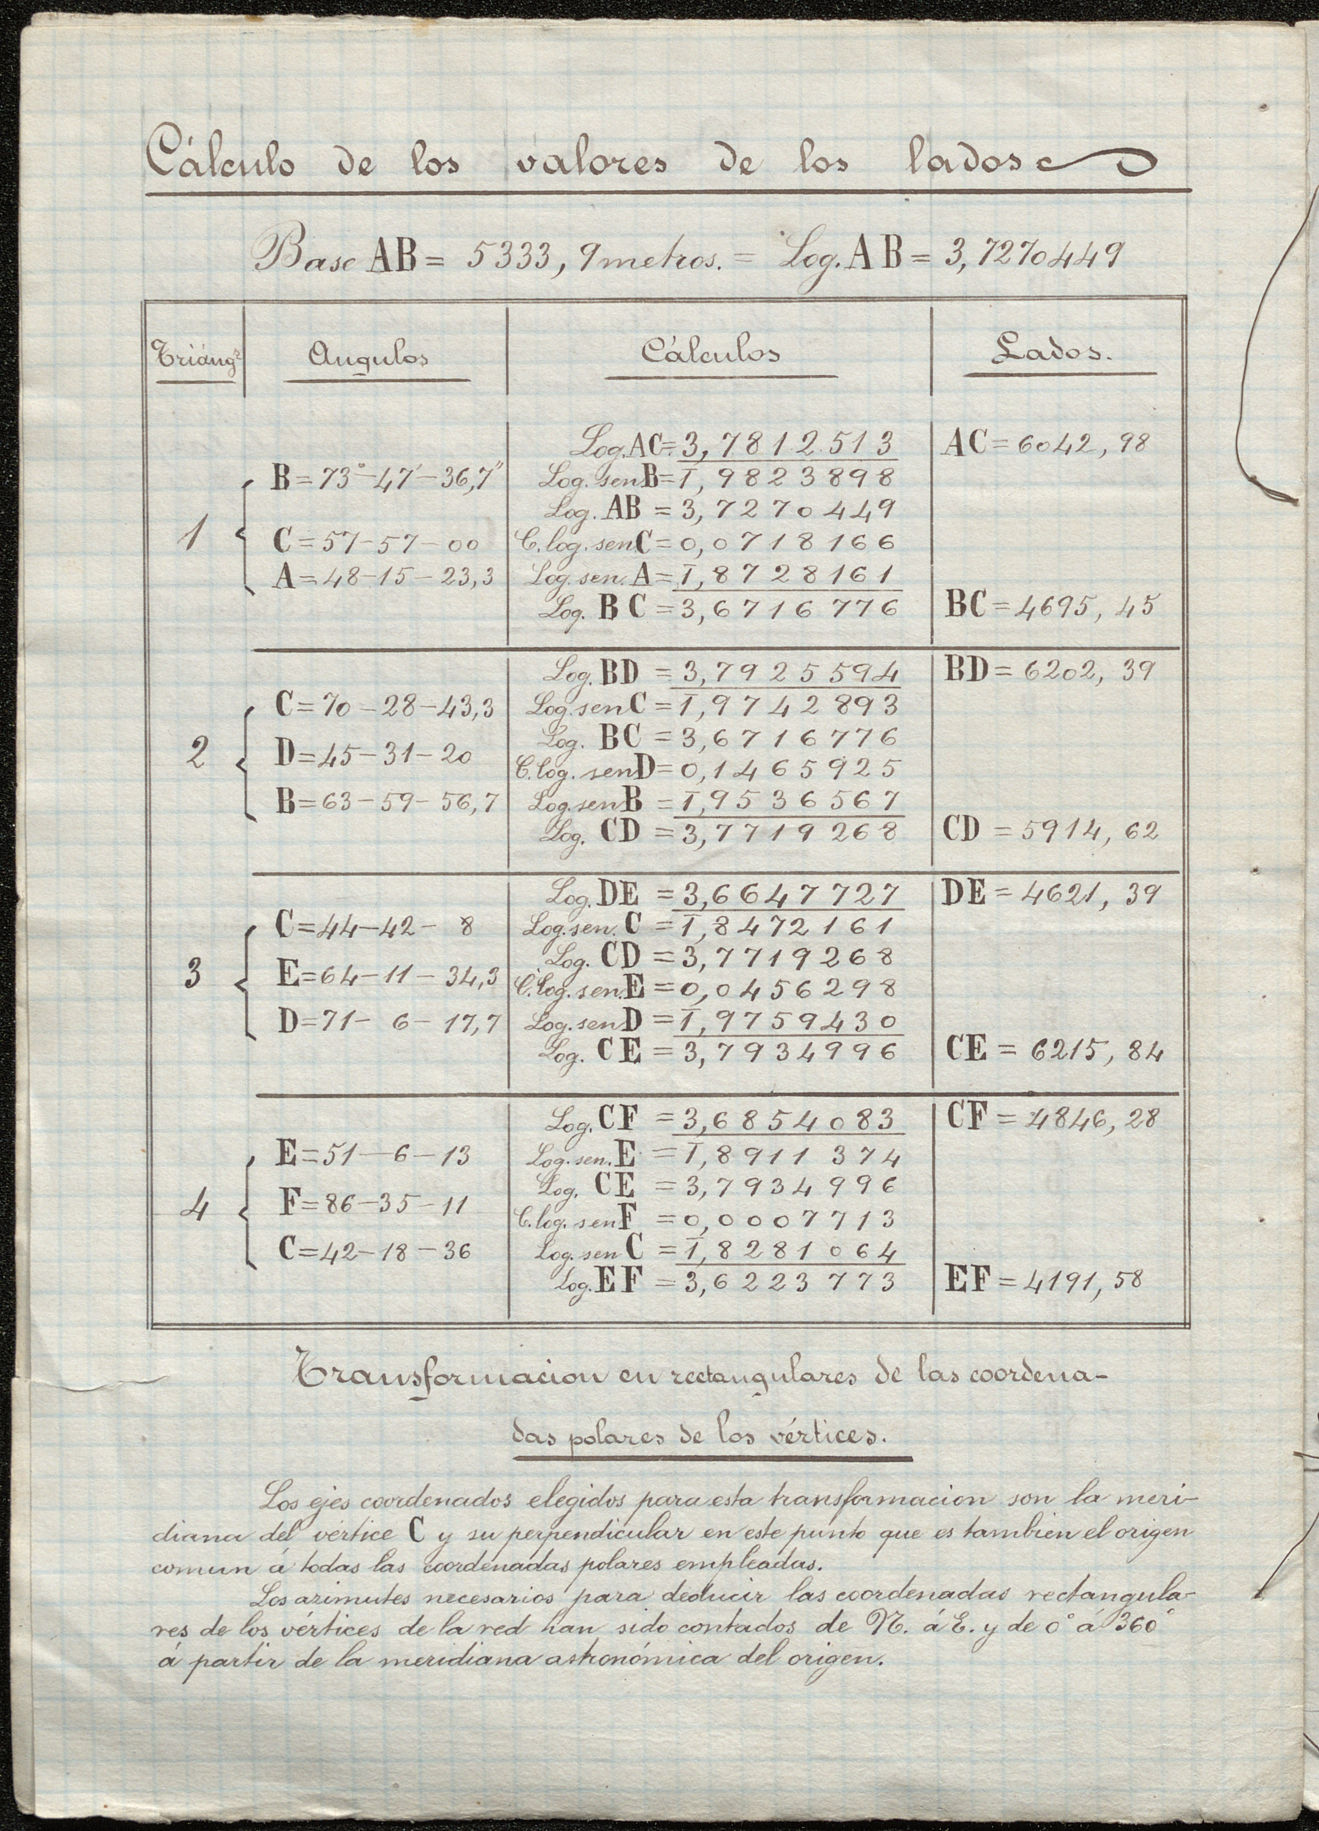 Cálculo de los valores de los lados
Base AB = 5333,9 metros. = Log. AB = 3,7270449
Triáng.s Angulos Cálculos Lados.
Log. AC = 3,7812513 AC = 6042,98
B = 73°-47'-36,7" Log. sen B = 1̅,9823898
Log. AB = 3,7270449
1 C = 57-57-00 C. log. sen C = 0,0718166
A = 48-15-23,3 Log. sen. A = 1̅,8728161
Log. BC = 3,6716776 BC = 4695,45
Log. BD = 3,7925594 BD = 6202,39
C = 70-28-43,3 Log. sen C = 1̅,9742893
Log. BC = 3,6716776
2 D = 45-31-20 C. log. sen D = 0,1465925
B = 63-59-56,7 Log. sen B = 1̅,9536567
Log. CD = 3,7719268 CD = 5914,62
Log. DE = 3,6647727 DE = 4621,39
C = 44-42-8 Log. sen. C = 1̅,8472161
Log. CD = 3,7719268
3 E = 64-11-34,3 C. log. sen. E = 0,0456298
D = 71-6-17,7 Log. sen D = 1̅,9759430
Log. CE = 3,7934996 CE = 6215,84
Log. CF = 3,6854083 CF = 4846,28
E = 51-6-13 Log. sen. E = 1̅,8911374
Log. CE = 3,7934996
4 F = 86-35-11 C. log. sen F = 0,0007713
C = 42-18-36 Log. sen C = 1̅,8281064
Log. EF = 3,6223773 EF = 4191,58
Transformacion en rectangulares de las coordena-
das polares de los vértices.
Los ejes coordenados elegidos para esta transformacion son la meri-
diana del vértice C y su perpendicular en este punto que es tambien el origen
comun á todas las coordenadas polares empleadas.
Los azimutes necesarios para deducir las coordenadas rectangula-
res de los vértices de la red han sido contados de N. á E. y de 0° á 360°
á partir de la meridiana astronómica del origen.